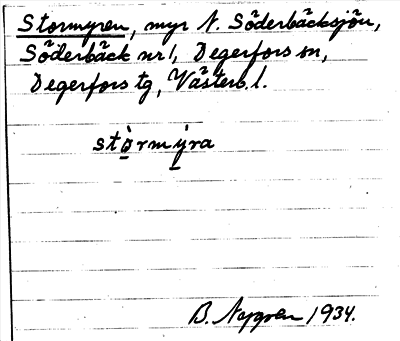 Stormyren, myr N. Söderbäcksjön,
Söderbäck nr 1, Degerfors sn,
Degerfors tg, Västerb. l.
stòrmýra
B. Nygren 1934.